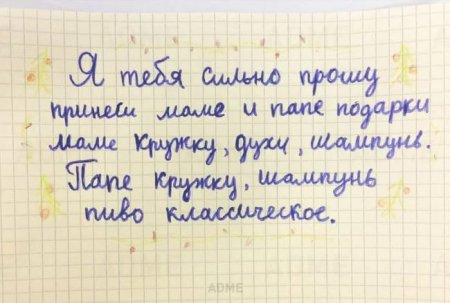 Я тебя сильно прошу
принеси маме и папе подарки
маме кружку, духи, шампунь.
Папе кружку, шампунь
пиво классическое.
ADME